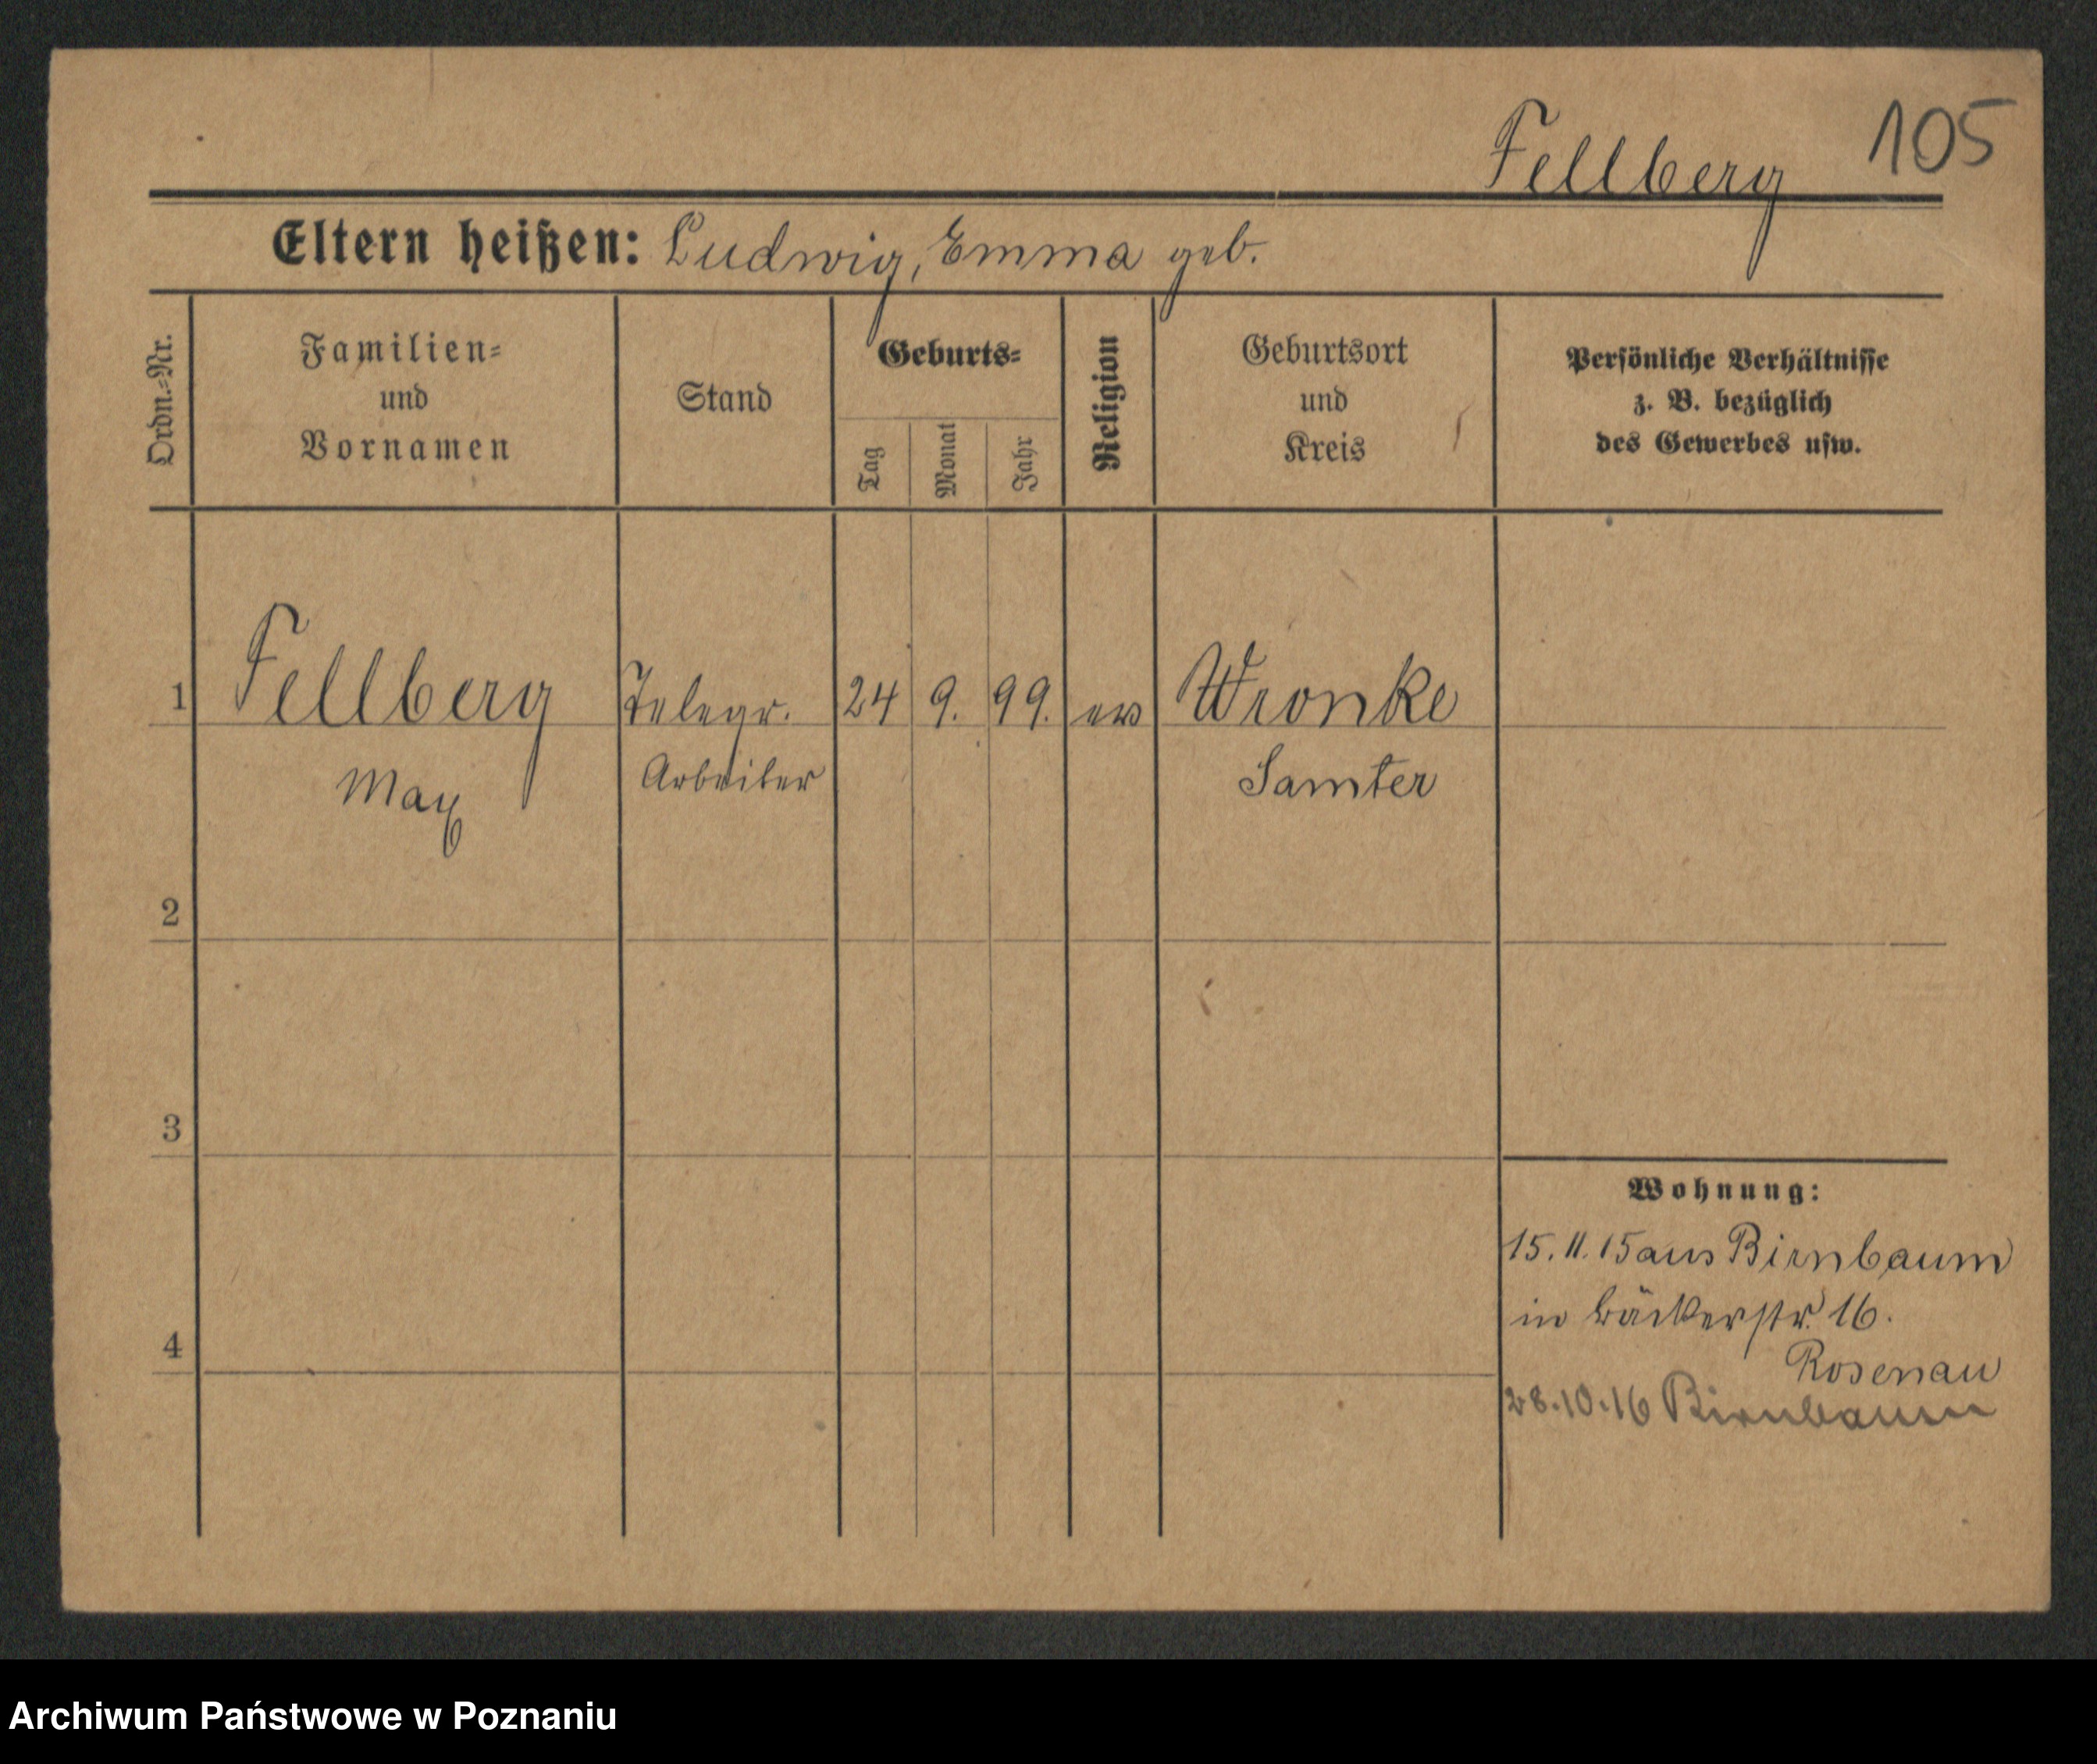 105
Fellberg
Eltern heißen: Ludwig, Emma geb.
Ordn.-Nr.
Familien- und Vornamen
Stand
Geburts-
Tag
Monat
Jahr
Religion
Geburtsort und Kreis
Persönliche Verhältnisse
z. B. bezüglich
des Gewerbes usw.
1 Fellberg Telegr. 24 9. 99. ev Wronke
Max Arbeiter Samter
2
3
4
Wohnung:
15. 11. 15 aus Birnbaum
in Bäckerstr. 16.
Rosenau
28.10.16 Birnbaum
Archiwum Państwowe w Poznaniu